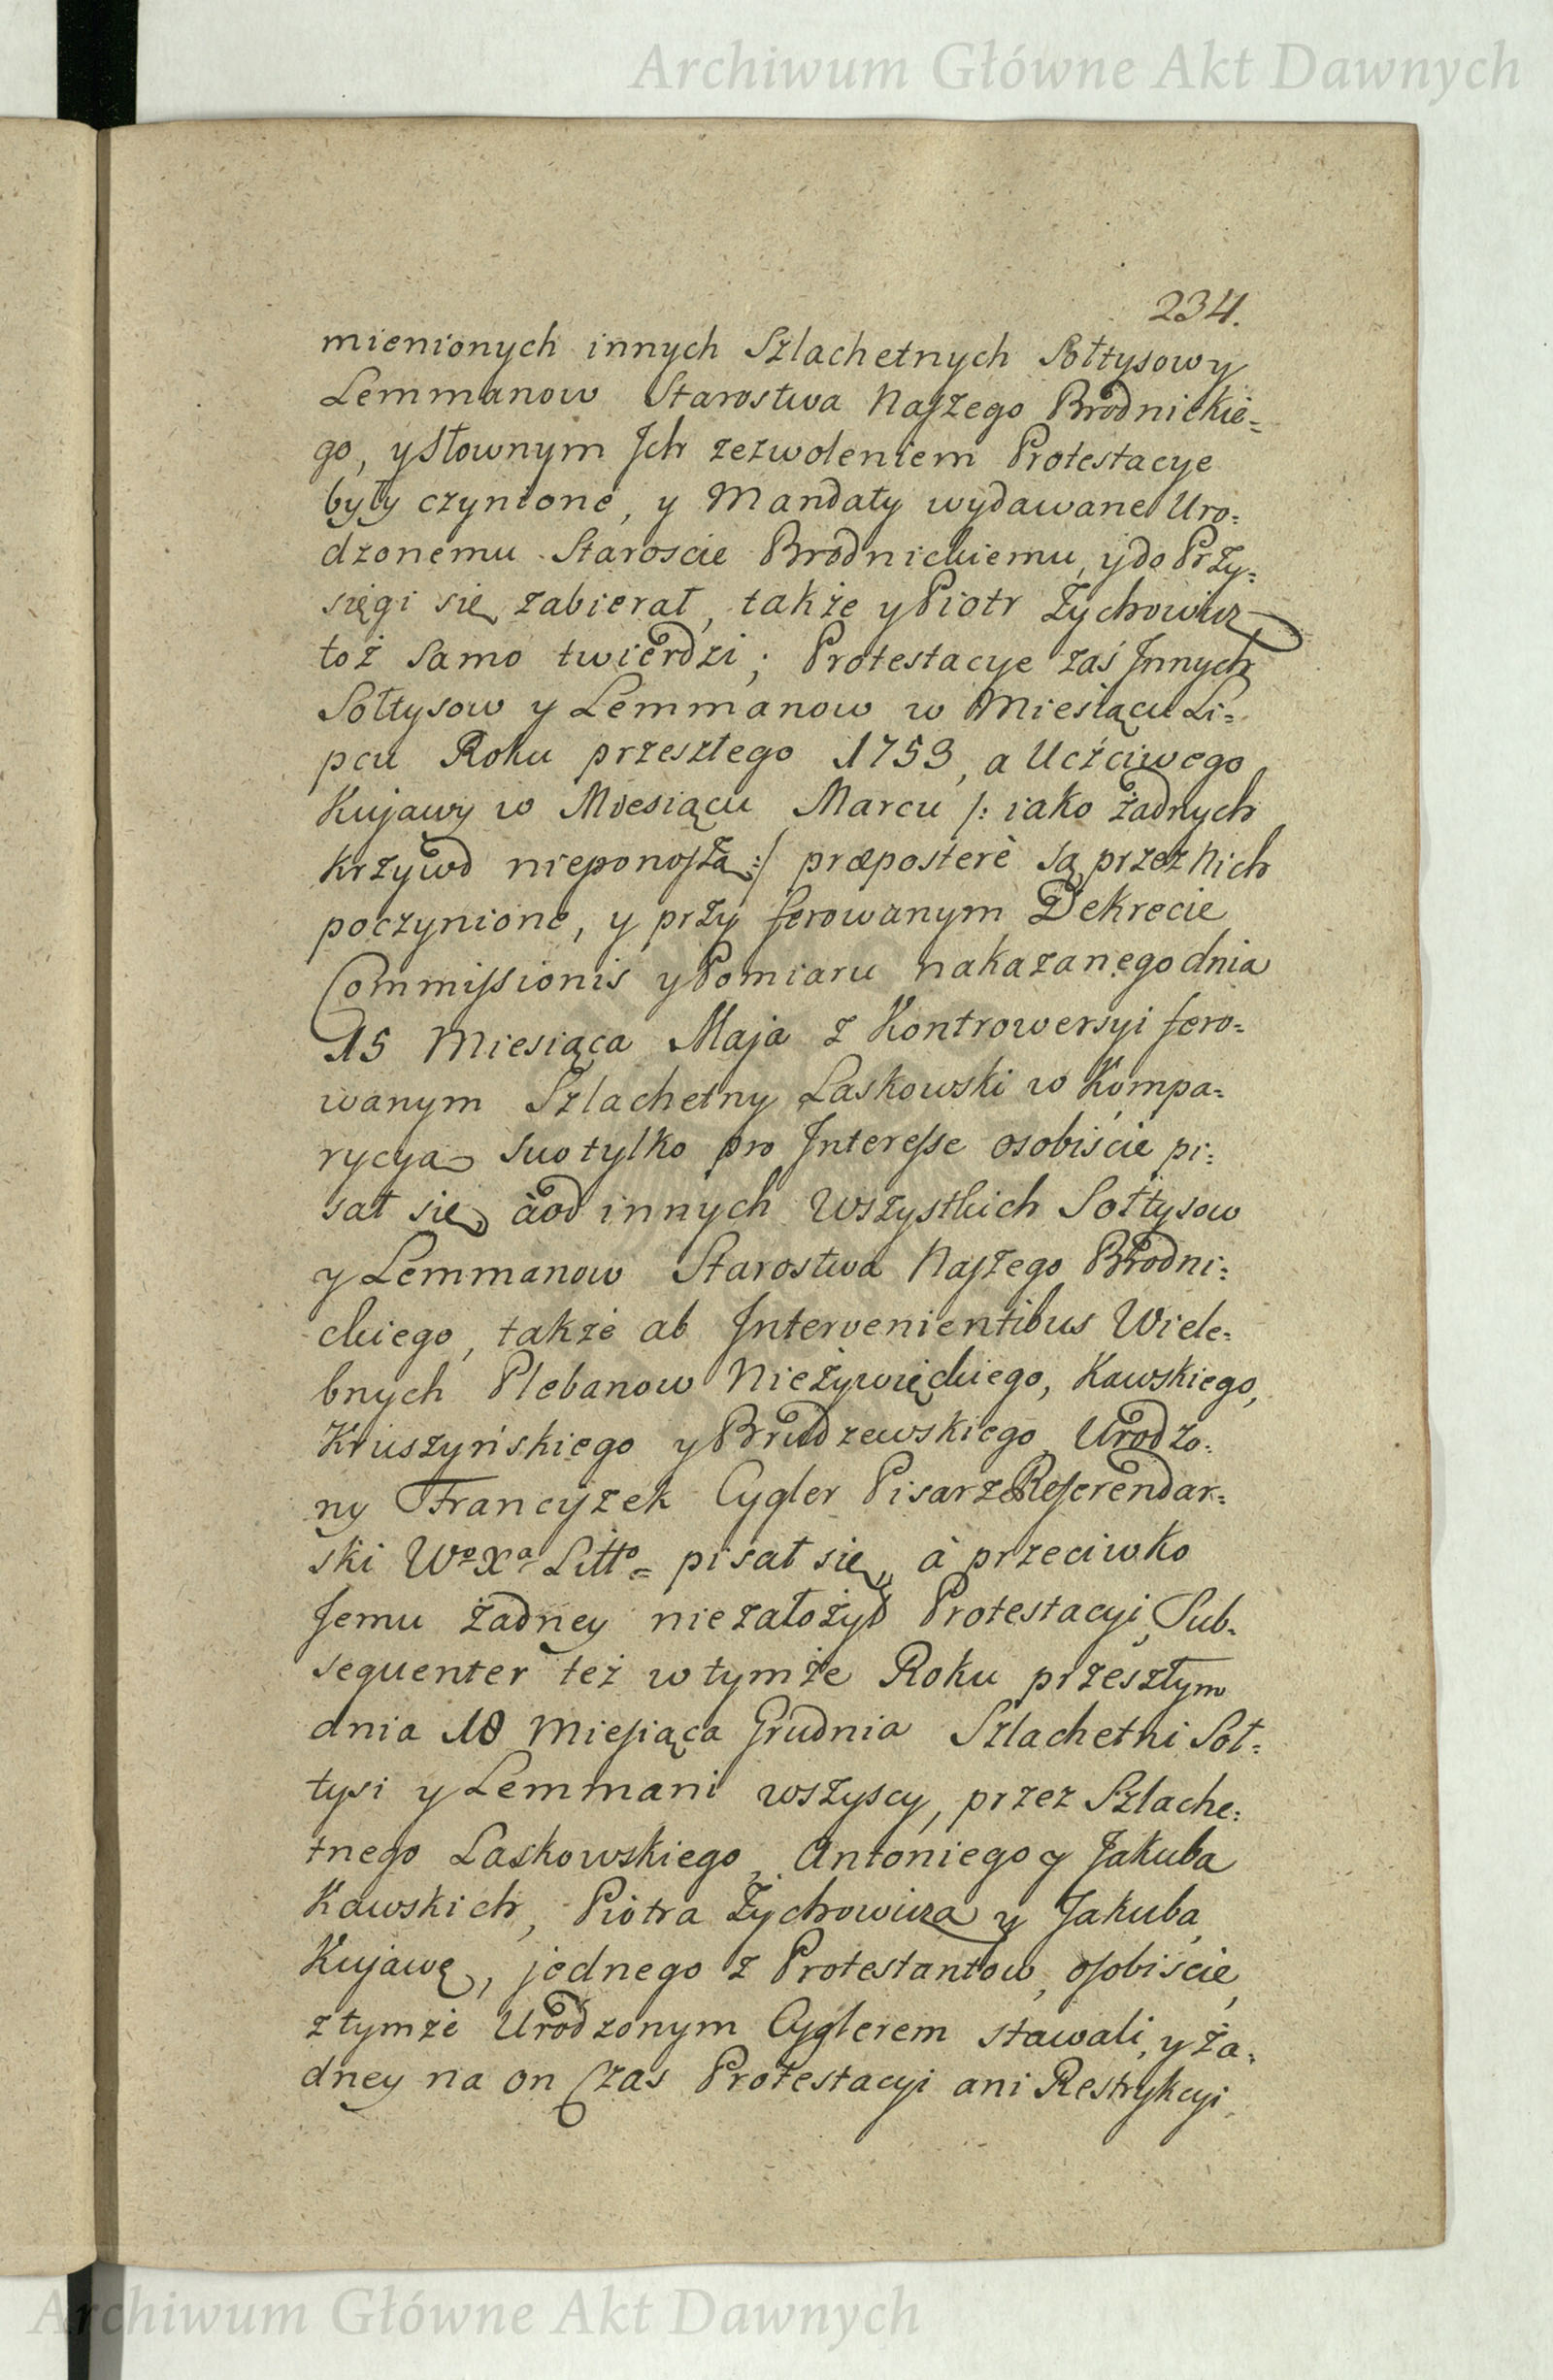 Archiwum Główne Akt Dawnych
234.
mienionych innych Szlachetnych Sołtysow y
Lemmanow Starostwa Naszego Brodnickie=
go, y słownym Ich zezwoleniem Protestacye
były czynione, y Mandaty wydawane Uro=
dzonemu Staroscie Brodnickiemu, y do Przy=
sięgi się zabierał, także y Piotr Zychowicz
toż samo twierdzi; Protestacye zaś Innych
Sołtysow y Lemmanow w Miesiącu Li=
pcu Roku przeszłego 1759, a Uczciwego
Kujawy w Miesiącu Marcu /: iako żadnych
krzywd nieponoszą :/ præposterè są przez Nich
poczynione, y przy ferowanym Dekrecie
Commissionis y Pomiaru nakazanego dnia
15 Miesiąca Maja z Kontrowersyi fero=
wanym Szlachetny Laskowski w Kompa=
rycyą suo tylko pro Interesse osobiście pi=
sał się à od innych Wszystkich Sołtysow
y Lemmanow Starostwa Naszego Brodni=
ckiego, także ab Intervenientibus Wiele=
bnych Plebanow Nieżywięckiego, Kawskiego,
Kruszyńskiego y Brudzewskiego, Urodzo=
ny Francyszek Cygler Pisarz Referendar=
ski Wº Xª Littº= pisał się, à przeciwko
Jemu żadney niezałożył Protestacyi, Sub=
sequenter też w tymże Roku przeszłym
dnia 18 Miesiąca Grudnia Szlachetni Soł=
tysi y Lemmani wszyscy, przez Szlache=
tnego Laskowskiego, Antoniego y Jakuba
Kawskich, Piotra Zychowicza y Jakuba
Kujawę, jednego z Protestantow, osobiście,
z tymże Urodzonym Cyglerem stawali, y ża=
dney na on Czas Protestacyi ani Restrykcyi
Archiwum Główne Akt Dawnych